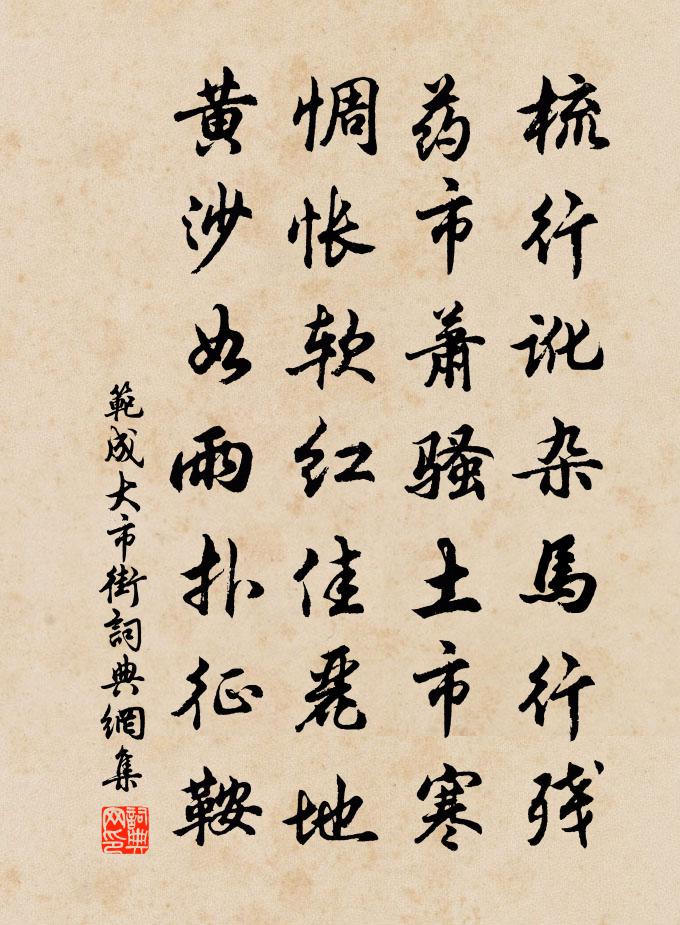 梳行讹杂馬行残
药市萧骚土市寒
惆怅软红佳麗地
黄沙如雨扑征鞍
範成大市街詞典網集
詞典网印